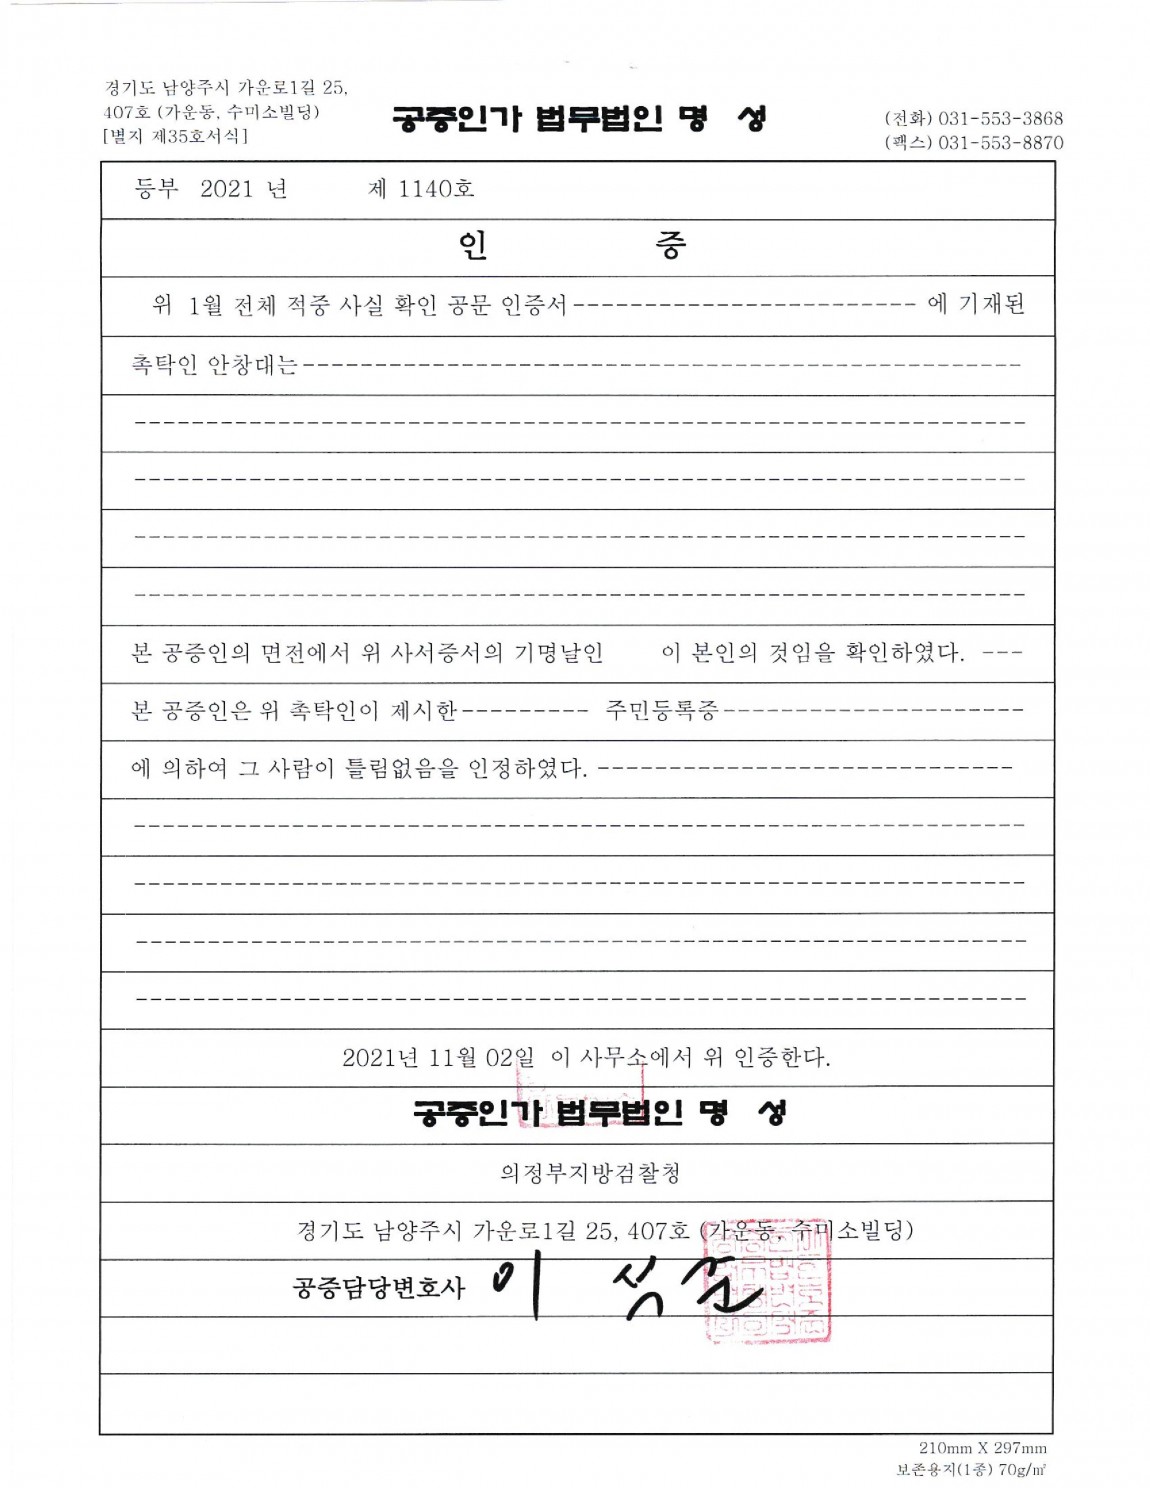 경기도 남양주시 가운로1길 25,
407호 (가운동, 수미소빌딩)
[별지 제35호서식]
공증인가 법무법인 명 성
(전화) 031-553-3868
(팩스) 031-553-8870
등부 2021 년 제 1140호
인 증
위 1월 전체 적중 사실 확인 공문 인증서------------------------ 에 기재된
촉탁인 안창대는--------------------------------------------------
--------------------------------------------------------------
--------------------------------------------------------------
--------------------------------------------------------------
--------------------------------------------------------------
본 공증인의 면전에서 위 사서증서의 기명날인 이 본인의 것임을 확인하였다. ---
본 공증인은 위 촉탁인이 제시한--------- 주민등록증---------------------
에 의하여 그 사람이 틀림없음을 인정하였다. -----------------------------
--------------------------------------------------------------
--------------------------------------------------------------
--------------------------------------------------------------
--------------------------------------------------------------
2021년 11월 02일 이 사무소에서 위 인증한다.
공증인가 법무법인 명 성
의정부지방검찰청
경기도 남양주시 가운로1길 25, 407호 (가운동, 수미소빌딩)
공증담당변호사 이 석 준
210mm X 297mm
보존용지(1종) 70g/㎡